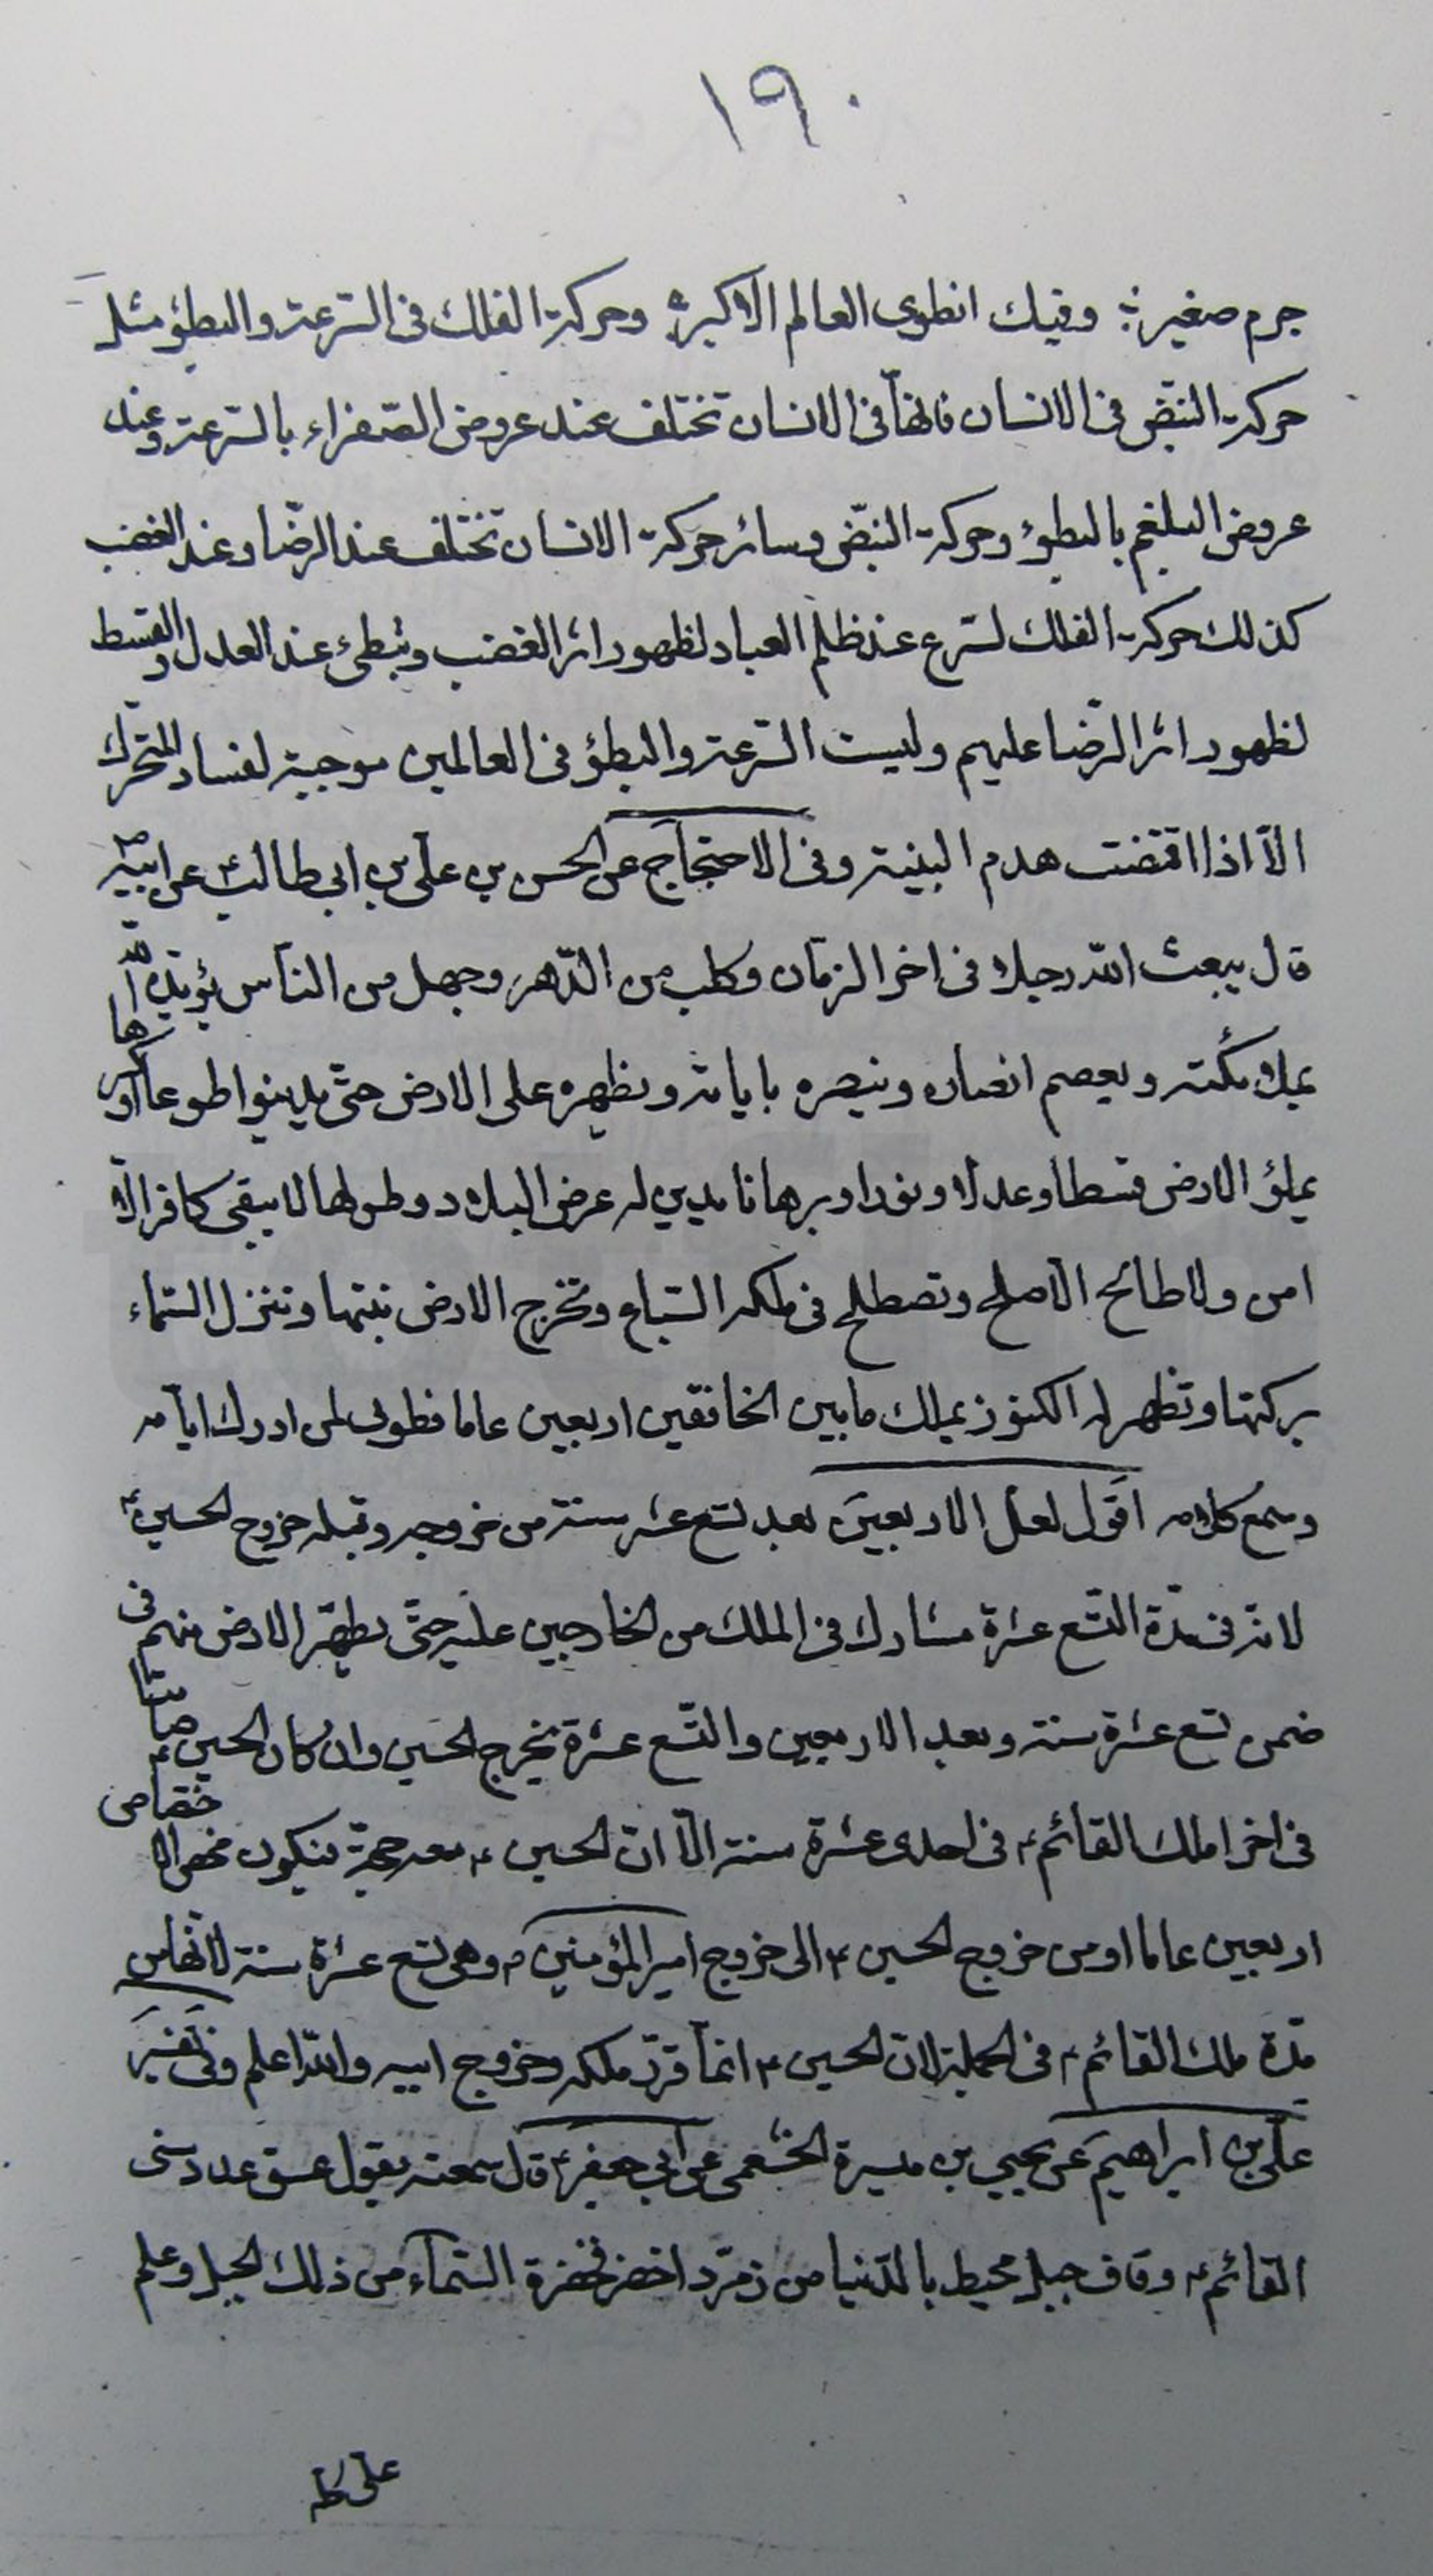 ١٩٠
جرم صغير ؛ وفيك انطوى العالم الاكبر ؛ وحركة الفلك فى السّرعة والبطؤ مثل
حركة النبض فى الانسان فانّها فى الانسان تختلف عند عروض الصّفراء بالسّرعة وعند
عروض البلغم بالبطؤ وحركة النبّض وسائر حركة الانسان تختلف عند الرضّا وعند الغضب
كذلك حركة الفلك تسّرع عند ظلم العباد لظهور اثر الغضب وتبطئ عند العدل والقسط
لظهور اثر الرّضا عليهم وليست السّرعة والبطؤ فى العالمين موجبة لفساد المتحّرك
الاّ اذا اقتضت هدم البنية وفى الاحتجاج عن الحسن بن علّى بن ابى طالب ع عن ابيه ص
قال يبعث الله رجلا فى اخر الزمان وكلب من الدّهر وجهل من النّاس يؤيّده الله
بملائكته ويعصم انصاره وينصره باياته ويظهره على الارض حتّى يدينوا طوعا او كرها
يملؤ الارض قسطا وعدلا ونورا وبرهانا يدين له عرض البلاد وطولها لا يبقى كافر الاّ
امن ولا طائح الاّ صلح وتصطلح فى ملكه السّباع وتخرج الارض نبتها وتنزل السّماء
بركتها وتظهر له الكنوز يملك ما بين الخافقين اربعين عاما فطوبى لمن ادرك ايّامه
وسمع كلامه اقول لعل الاربعين بعد تسع عشر سنة من خروجه وقبله خروج الحسين ع
لانّه فى مدّة التّسع عشرة مشارك فى الملك من الخارجين عليه حتّى يطهّر الارض منهم فى
ضمن تسع عشرة سنة وبعد الاربعين والتّسع عشرة يخرج الحسين وان كان الحسين ع صامتا
فى اخر املك القائم ع فى احدى عشرة سنة الاّ انّ الحسين ع معه حجّة فيكون
اربعين عاما او من خروج الحسين ع الى خروج امير المؤمنين ع وهى تسع عشرة سنة لانّها من
مدّة ملك القائم ع فى الجملة لان الحسين ع انمّا قرّر ملكه وخروج ابيه والله اعلم وفى تفسير
علّى بن ابراهيم عن يحيى بن ميسرة الخثعمى عن ابى جعفر ع قال سمعته يقول عسق عدد سنى
القائم ع وقاف جبل محيط بالدّنيا من زمرّد اخضر فخضرة السّماء من ذلك الجبل وعلم
على كله